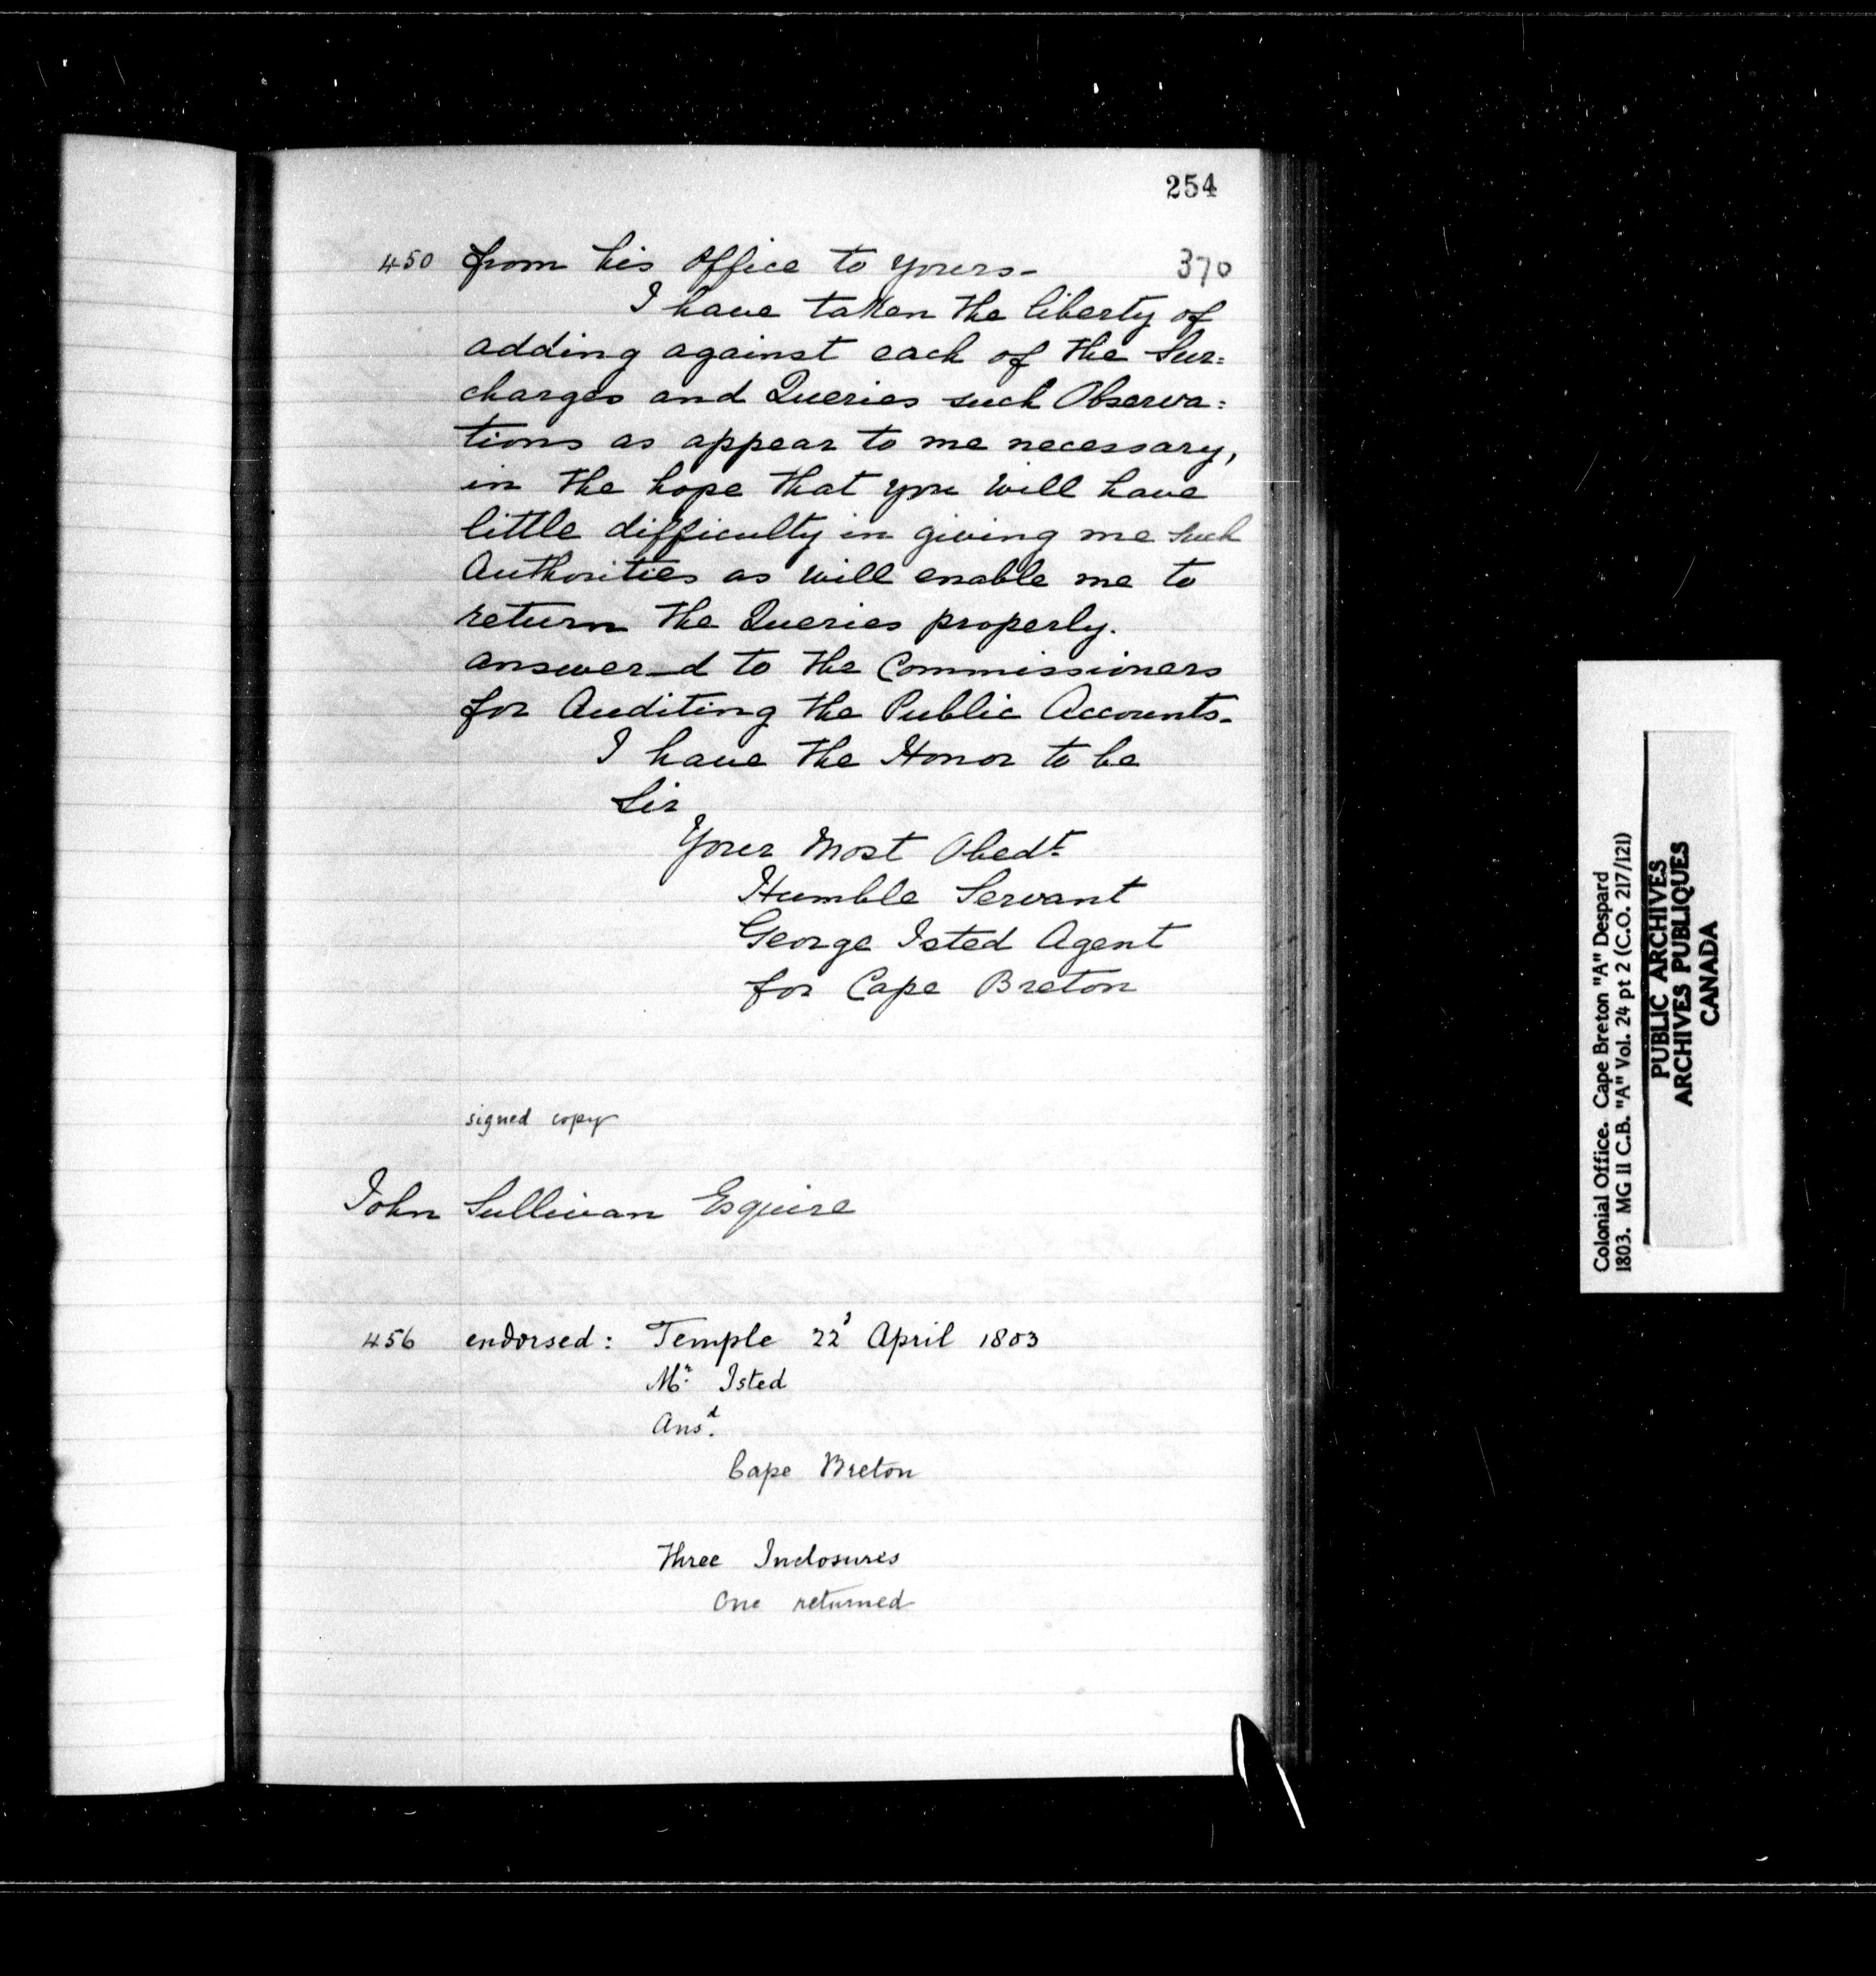 254
450 from his Office to yours-
370
I have taken the liberty of
adding against each of the Sur=
charges and Queries such Observa=
tions as appear to me necessary,
in the hope that you will have
little difficulty in giving me such
Authorities as will enable me to
return the Queries properly.
answer_d to the Commissioners
for Auditing the Public Accounts-
I have the Honor to be
Sir
Your Most Obedt.
Humble Servant
George Isted Agent
for Cape Breton
signed copy
John Sullivan Esquire
456 endorsed: Temple 22d April 1803
Mr. Isted
Ansd.
Cape Breton
Three Inclosures
One returned
Colonial Office. Cape Breton "A" Despard
1803. MG 11 C.B. "A" Vol. 24 pt 2 (C.O. 217/121)
PUBLIC ARCHIVES
ARCHIVES PUBLIQUES
CANADA